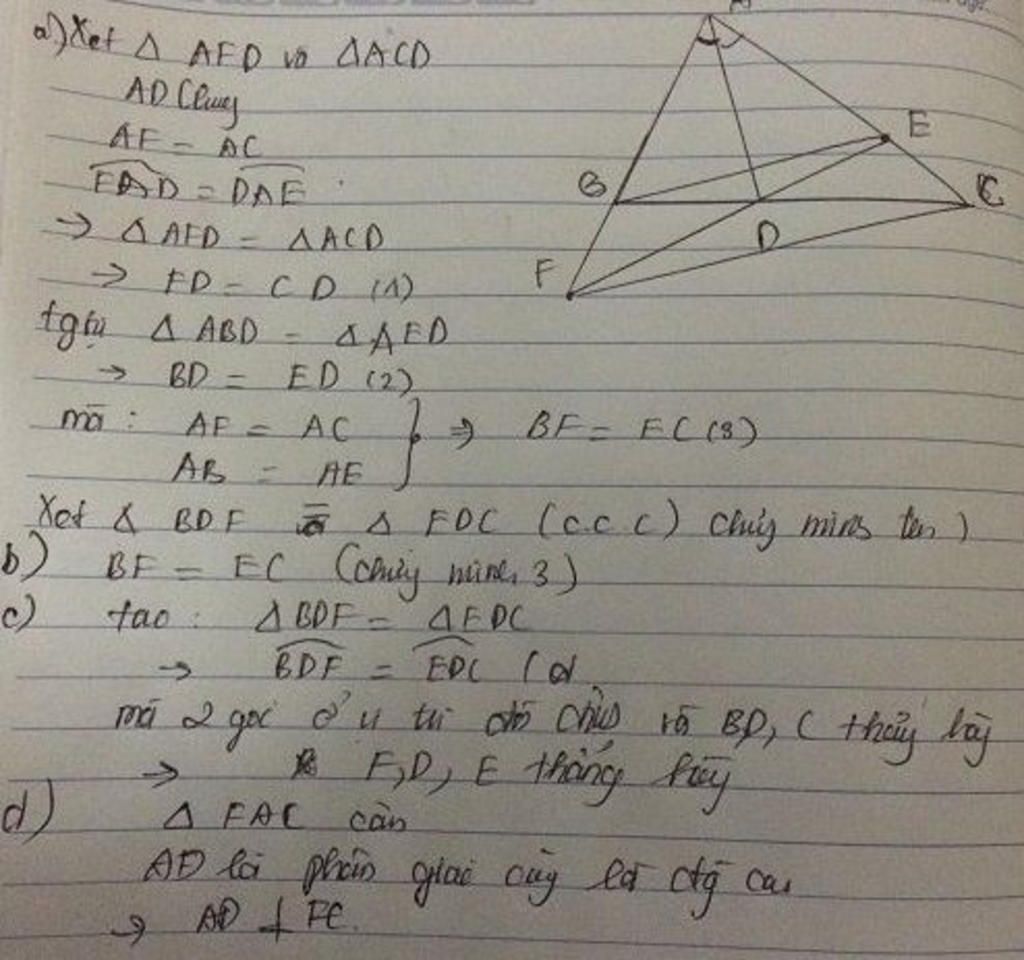 a) Xét Δ AFD và ΔACD
AD Chung
AF = AC
FAD = DAE
→ Δ AFD = ΔACD
→ FD = CD (1)
tgtự Δ ABD = ΔAED
→ BD = ED (2)
mà : AF = AC
AB = AE
} ⇒ BF = EC (3)
Xét Δ BDF = Δ EDC (c.c.c) chứng minh trên)
b) BF = EC (chứng minh 3)
c) ta có : ΔBDF = ΔEDC
→ BDF = EDC
mà 2 góc ở vị trí đối và BD, C thẳng hàng
→ F, D, E thẳng hàng
d) Δ FAC cân
AD là phân giác cũng là đg cao
→ AD ⊥ FC.
A
E
B
C
D
F